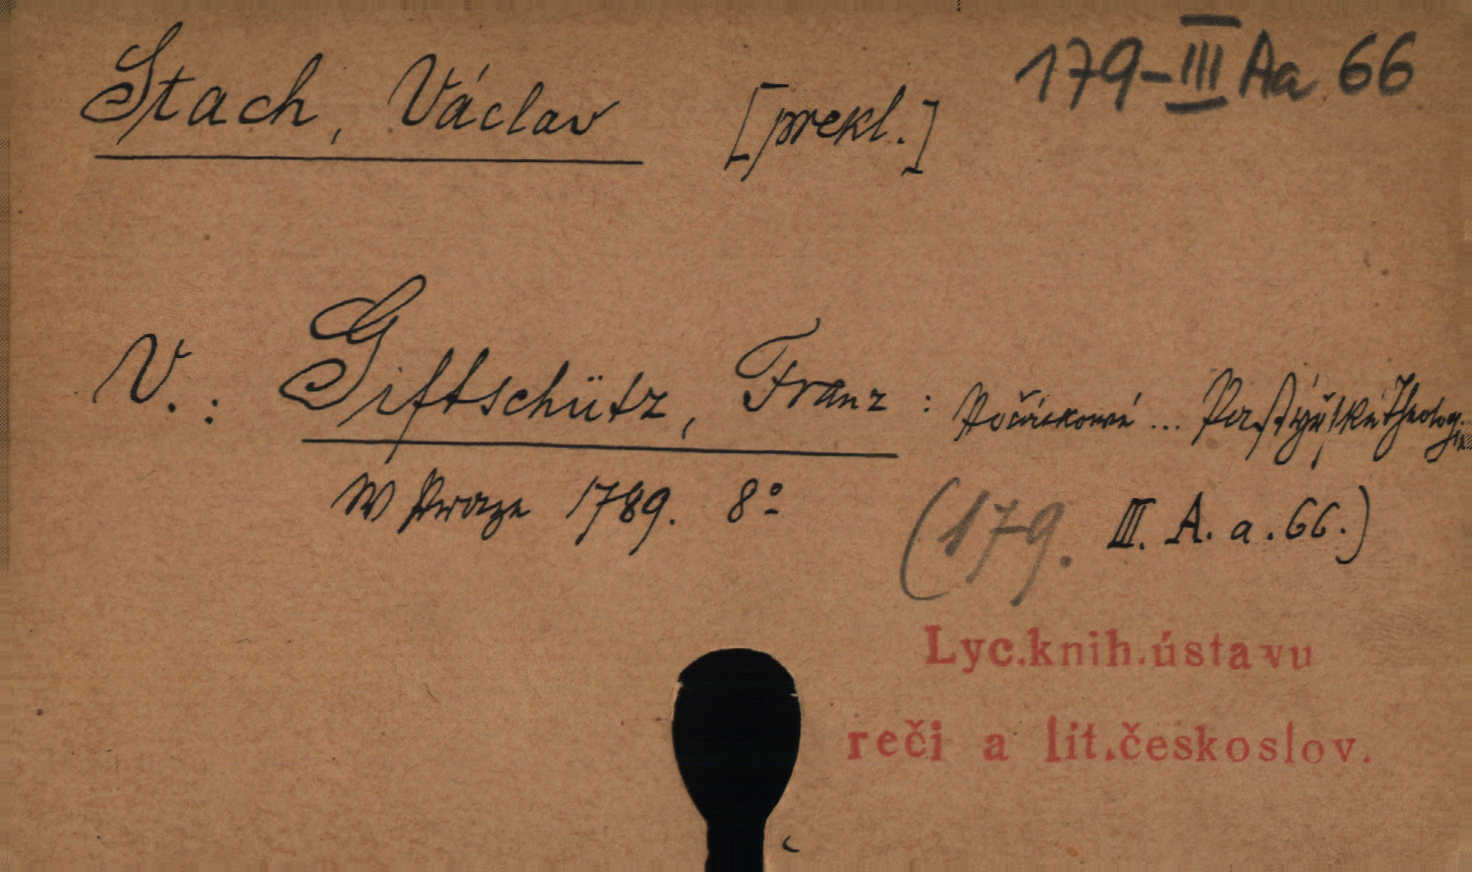 179-III Aa 66
Stach, Václav [prekl.]
V.: Giftschütz, Franz: Počátkowé ... Pastýřské Theologie
W Praze 1789. 8°
(179. III. A. a. 66.)
Lyc.knih.ústavu
reči a lit.českoslov.